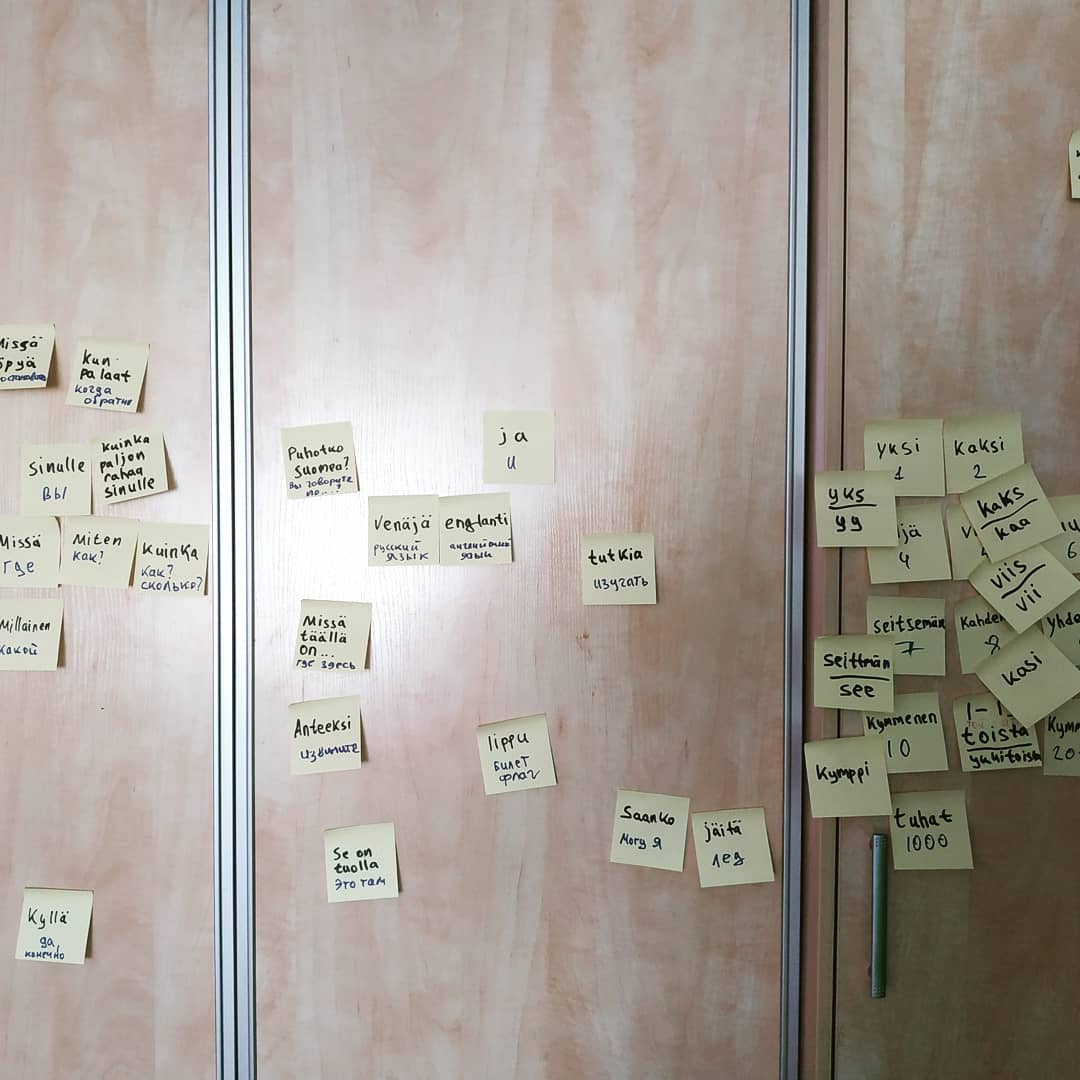 Missä
Kun
palaat
когда
обратно
sinulle
вы
kuinka
paljon
rahaa
sinulle
Missä
где
Miten
как?
Kuinka
как?
сколько?
Millainen
какой
Kyllä
да,
конечно
Puhotko
suomea?
вы говорите
по....
ja
и
Venäjä
русский
язык
englanti
английский
язык
tutkia
изучать
Missä
täällä
on...
где здесь
Anteeksi
извините
lippu
билет
флаг
Saanko
могу я
jäitä
лед
Se on
tuolla
это там
yksi
1
Kaksi
2
yks
yy
kaks
kaa
jä
4
6
viis
vii
seitsemän
7
Kahde
8
yhde
seittmän
see
kasi
Kymmenen
10
toista
yksitoista
Kymm
20
Kymppi
tuhat
1000